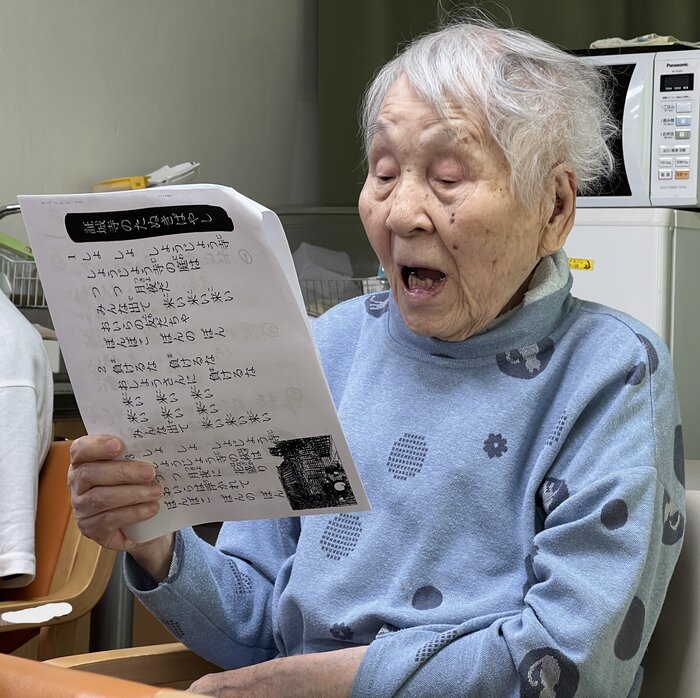 證城寺のたぬきばやし
1 しょ しょ しょうじょう寺
しょうじょう寺の庭は
つ つ 月夜だ
みんな出て 来い来い来い
おいらの友だちゃ
ぽんぽこ ぽんの ぽん
2 負けるな 負けるな
おしょうさんに 負けるな
来い 来い 来い
来い 来い 来い
みんな出て 来い来い来い
3 しょ しょ しょうじょう寺
しょうじょう寺の萩は
つ つ 月夜に 花盛り
おいらは浮かれて
ぽんぽこ ぽんの ぽん
Panasonic
1 ごはん
2 飲み物
3 お弁当